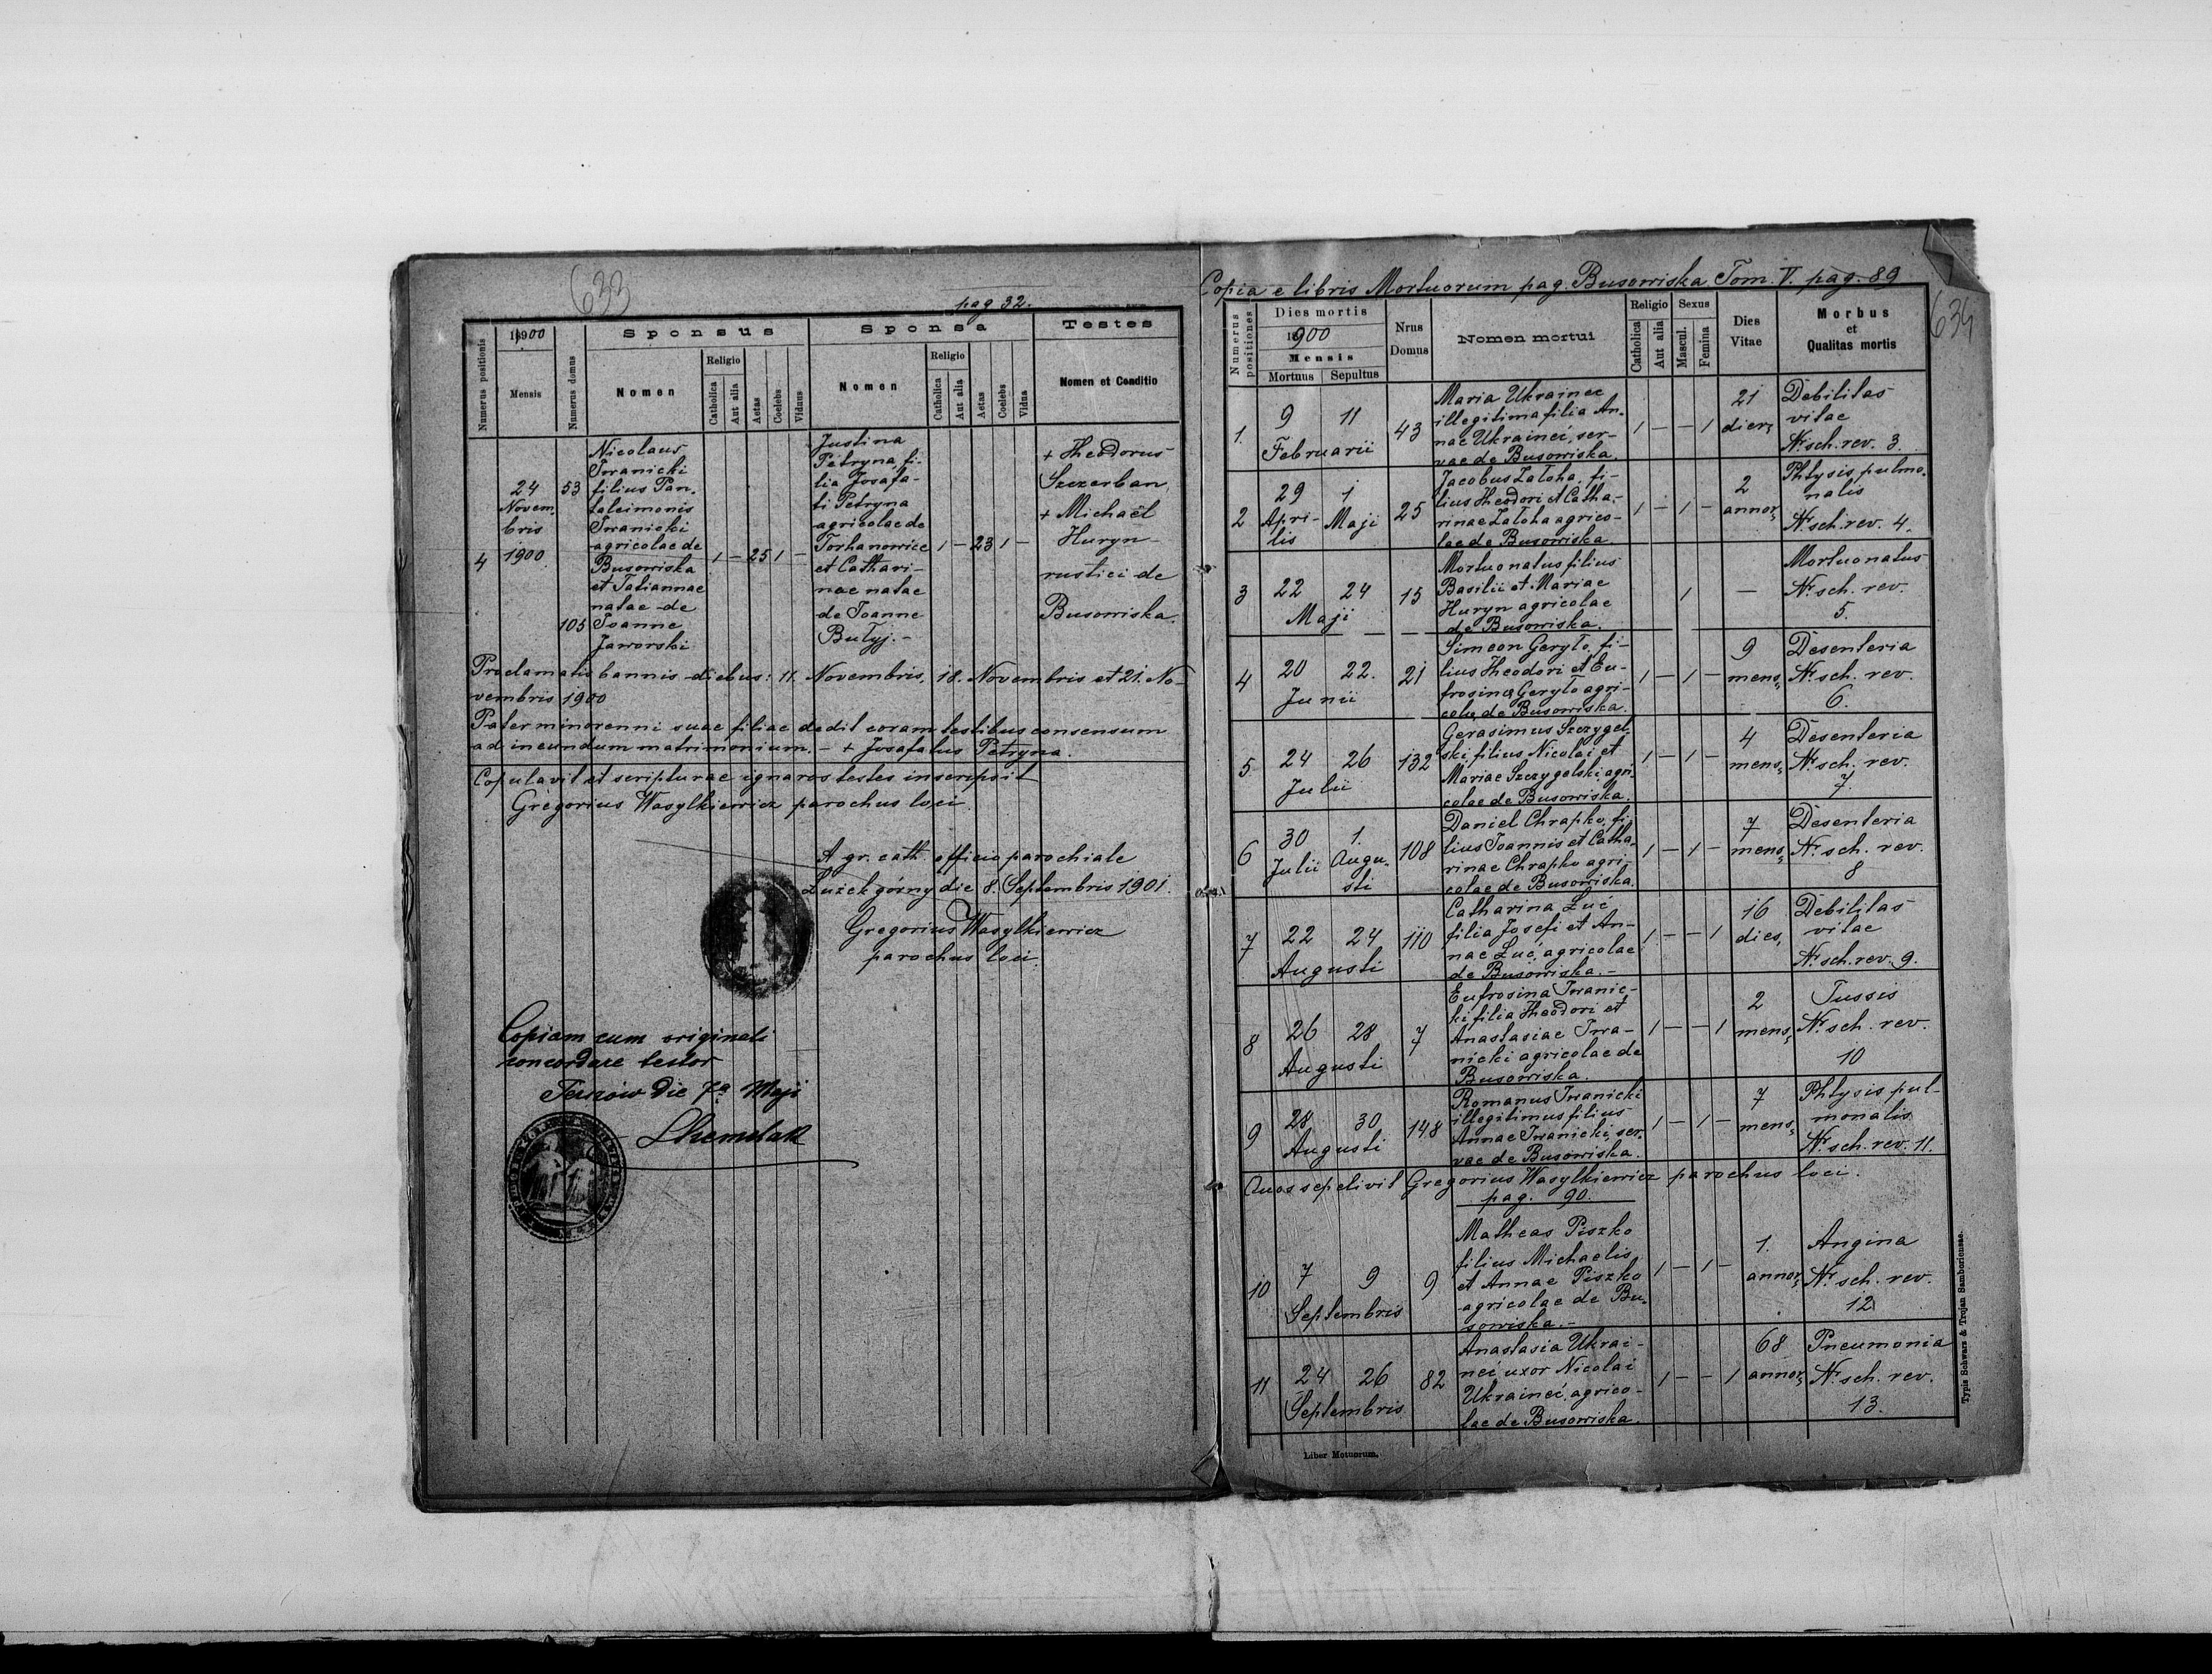 633
pag 32.
Numerus positionis
1900
Mensis
Numerus domus
Sponsus
Nomen
Religio
Catholica
Aut alia
Aetas
Coelebs
Viduus
Sponsa
Nomen
Religio
Catholica
Aut alia
Aetas
Coelebs
Vidua
Testes
Nomen et Conditio
4
24
Novem-
bris
1900
53
105
Nicolaus
Iwanicki
filius Pan-
taleimonis
Iwanicki
agricolae de
Busowiska
et Tatiannae
natae de
Joanne
Jaworski
1 — 25 1 —
Justina
Petryna, fi-
lia Josafa-
ti Petryna
agricolae de
Torhanowice
et Cathari-
nae natae
de Joanne
Butyj. -
1 — 23 1 —
+ Theodorus
Szczerban,
+ Michaël
Huryn -
rustici de
Busowiska.
Proclamatis bannis diebus: 11. Novembris, 18. Novembris et 21. No-
vembris 1900
Pater minorenni suae filiae dedit coram testibus consensum
ad ineundum matrimonium. - + Josafatus Petryna.
Copulavit et scripturae ignaros testes inscripsit
Gregorius Wasylkiewicz parochus loci.
A gr. cath. officio parochiale
Łużek górny die 8. Septembris 1901.
Gregorius Wasylkiewicz
parochus loci.
Copiam cum originali
concordare testor
die 7a Maji
Copia e libris Mortuorum pag. Busowiska Tom. V. pag. 89
634
Numerus positiones
Dies mortis
1900
Mensis
Mortuus Sepultus
Nrus Domus
Nomen mortui
Religio
Catholica
Aut alia
Sexus
Mascul.
Femina
Dies Vitae
Morbus
et
Qualitas mortis
1. 9 11 Februarii 43
Maria Ukrainec
illegitima filia An-
nae Ukraineć, ser-
vae de Busowiska.
1 — — 1
21 dier,
Debilitas
vitae
Nr. sch. rev. 3.
2 29 Apri-
lis 1 Maji 25
Jacobus Załoha, fi-
lius Theodori et Catha-
rinae Załoha agrico-
lae de Busowiska.
1 — 1 —
2 annor,
Phtysis pulmo-
nalis
Nr. sch. rev. 4.
3 22 24 Maji 15
Mortuonatus filius
Basilii et Mariae
Huryn agricolae
de Busowiska.
1
—
Mortuonatus
Nr. sch. rev.
5.
4 20 22. Junii 21
Simeon Geryło, fi-
lius Theodori et Eu-
frosinae Geryło agri-
colae de Busowiska.
1 — 1 —
9 mens,
Desenteria
Nr. sch. rev.
6.
5 24 26 Julii 132
Gerasimus Szczygel-
ski filius Nicolai et
Mariae Szczygelski agri-
colae de Busowiska.
1 — 1 —
4 mens,
Desenteria
Nr. sch. rev.
7.
6 30 Julii 1. Augu-
sti 108
Daniel Chrapko, fi-
lius Joannis et Catha-
rinae Chrapko agri-
colae de Busowiska.
1 — 1 —
7 mens,
Desenteria
Nr. sch. rev.
8
7 22 24 Augusti 110
Catharina Łuć
filia Josefi et An-
nae Łuć, agricolae
de Busowiska. -
1 — — 1
16 dies,
Debilitas
vitae
Nr. sch. rev. 9.
8 26 28 Augusti 7
Eufrosina Iwanic-
ki filia Theodori et
Anastasiae Iwa-
nicki agricolae de
Busowiska.
1 — — 1
2 mens,
Tussis
Nr. sch. rev.
10
9 28 30 Augusti 148
Romanus Iwanicki
illegitimus filius
Annae Iwanicki, ser-
vae de Busowiska.
1 — 1 —
7 mens,
Phtysis pul-
monalis
Nr. sch. rev. 11.
Quos sepelivit Gregorius Wasylkiewicz parochus loci.
pag. 90.
10 7 9 Septembris 9
Matheas Piszko
filius Michaelis
et Annae Piszko
agricolae de Bu-
sowiska. -
1 — 1 —
1. annor,
Angina
Nr. sch. rev.
12
11 24 26 Septembris 82
Anastasia Ukrai-
neć uxor Nicolai
Ukraineć, agrico-
lae de Busowiska.
1 — — 1
68 annor,
Pneumonia
Nr. sch. rev.
13.
Liber Motuorum.
Typis Schwarz & Trojan Samboriensae.